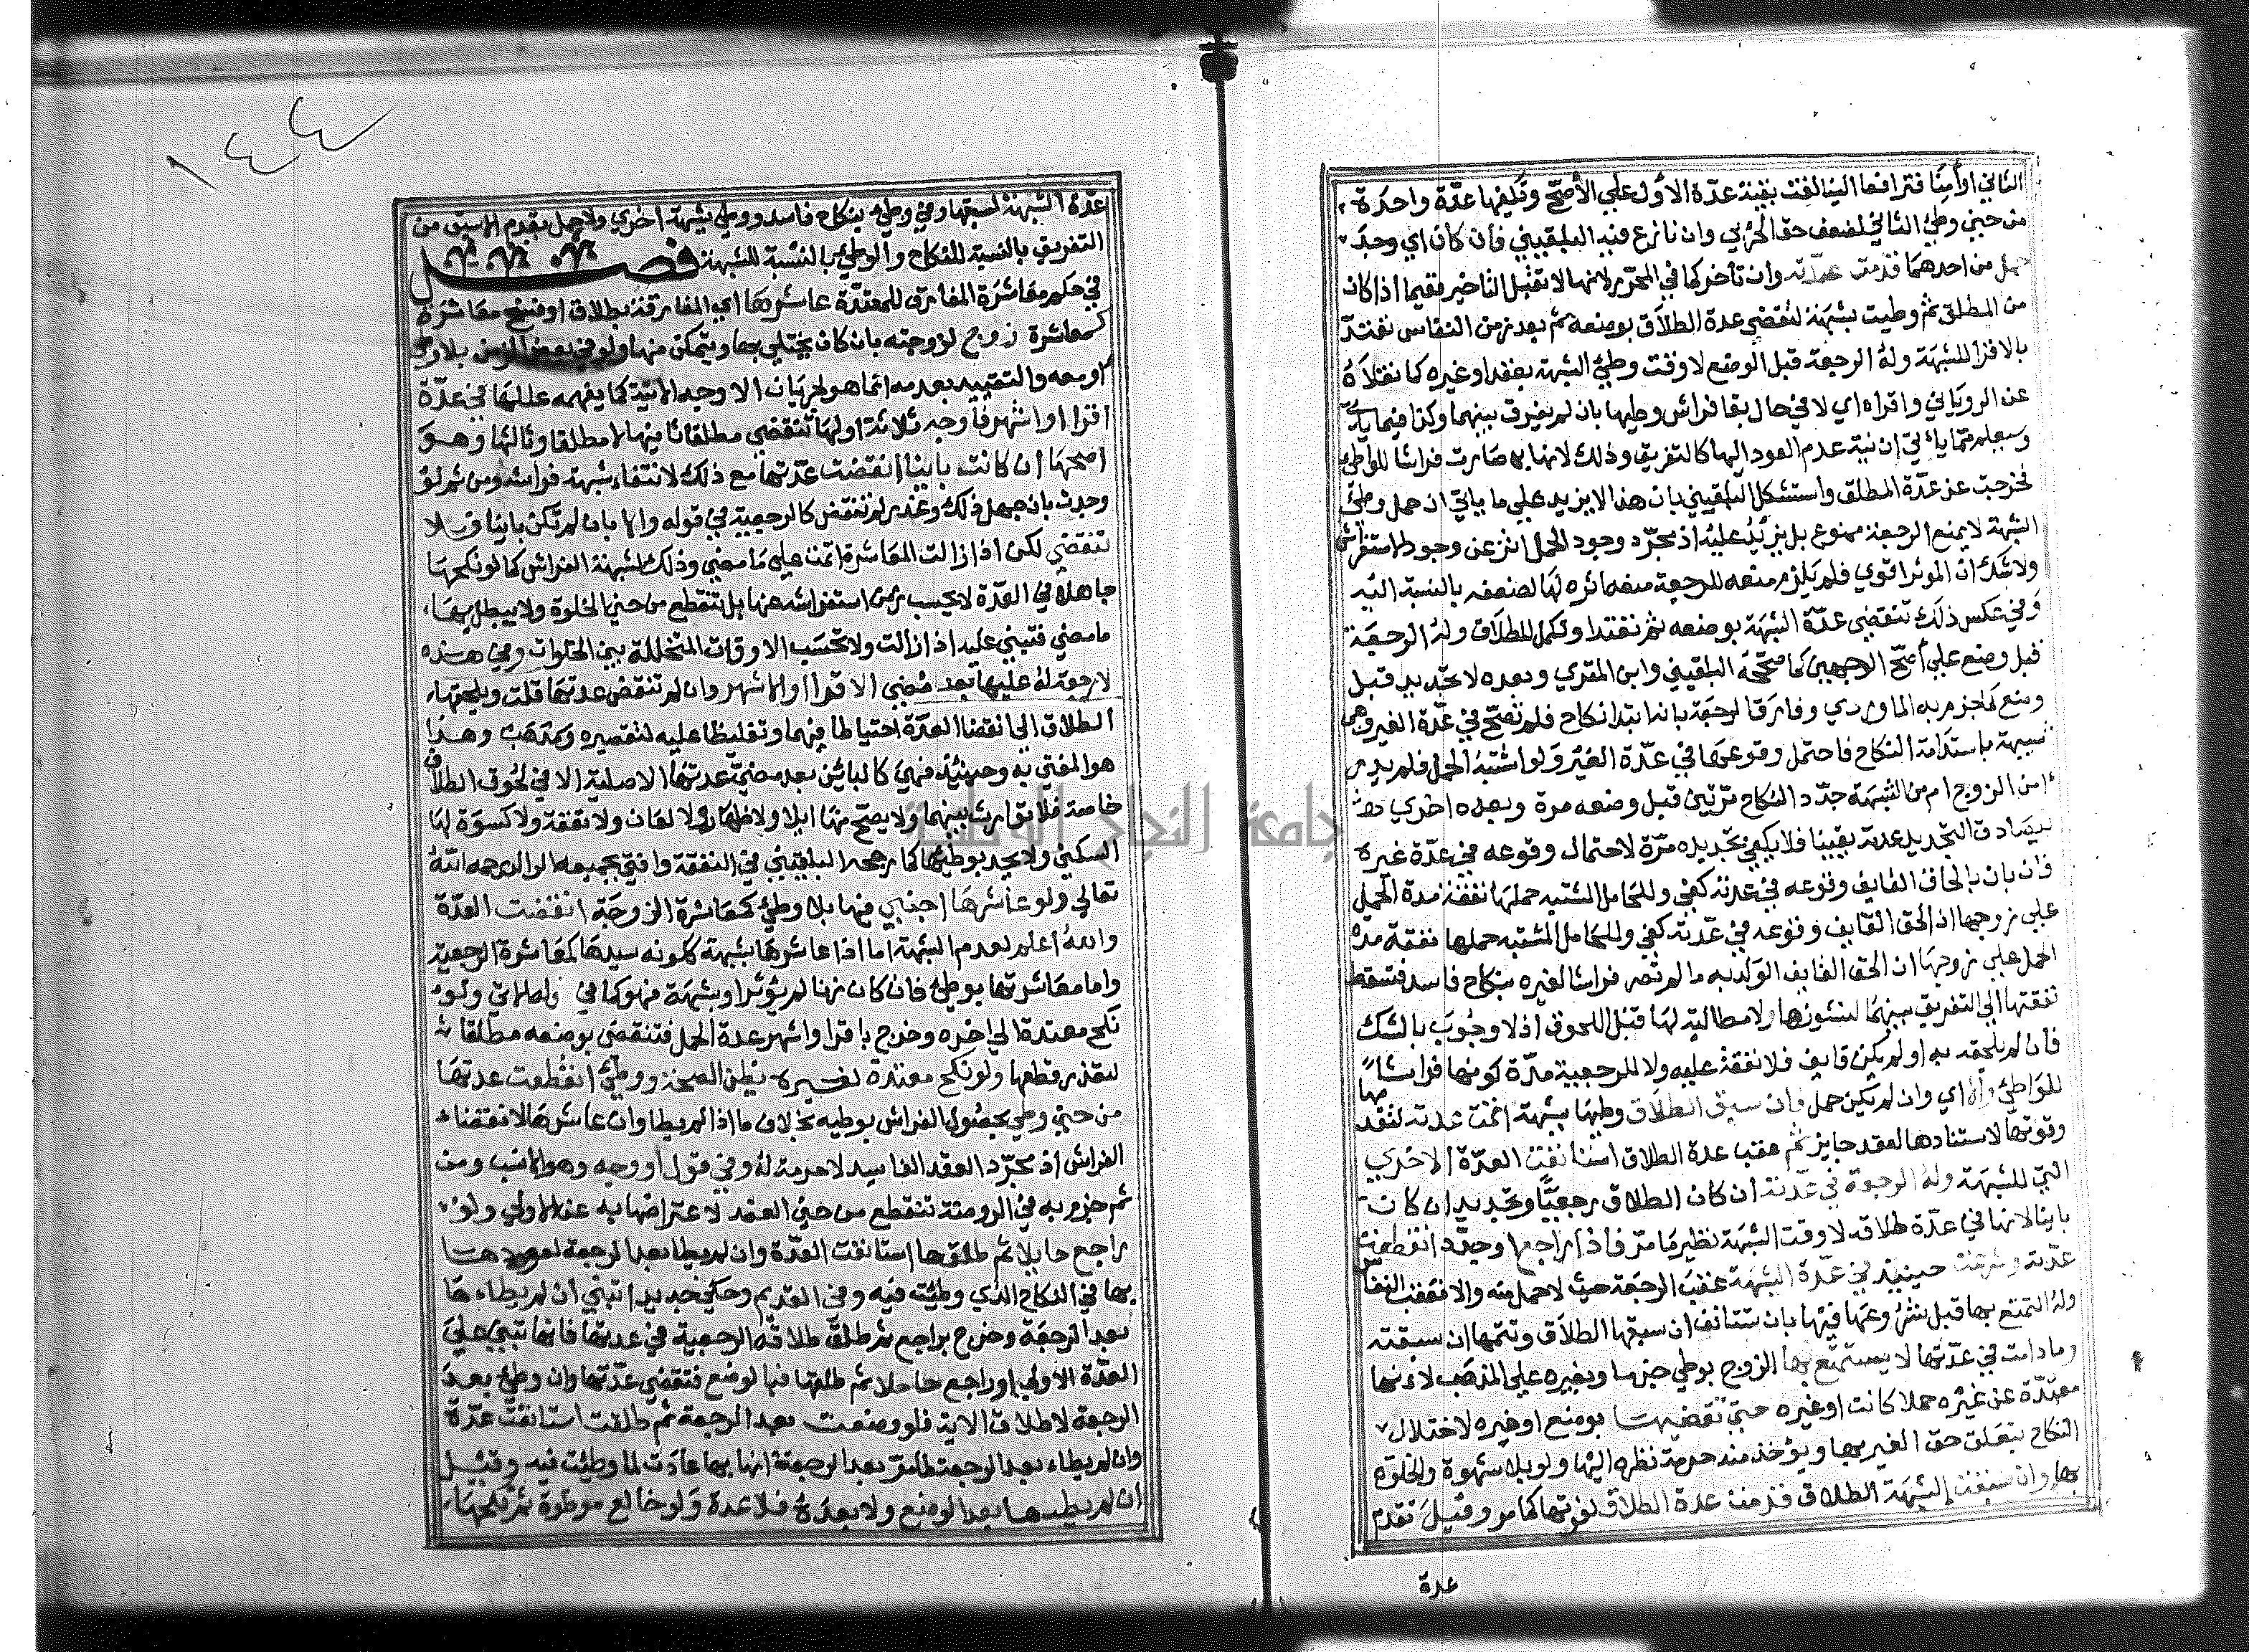 الثاني او أمنا فترافعا الينا لغت بقية عدة الاول علي الأصح وتكفيها عدة واحدة
من حين وطئ الثاني لضعف حق الحربي وان نازع فيه البلقيني فان كان اي وجد
حمل من احدهما قدمت عدته وان تأخر كما في المحرر لانها لا تقبل التاخير ففيما اذا كان
من المطلق ثم وطيت بشبهة تنقضي عدة الطلاق بوضعه ثم بعد زمن النفاس تعتد
بالاقرا للشبهة وله الرجعة قبل الوضع لا وقت وطئ الشبهة بعقد او غيره كما نقلاه
عن الروياني واقراه اي لا في حال بقا فراش وطيها بان لم يفرق بينهما وكذا فيما ياتي
وسيعلم مما ياتي ان نية عدم العود اليها كالتفريق وذلك لانها به صارت فراشا للواطئ
فخرجت عن عدة المطلق واستشكل البلقيني بان هذا لا يزيد علي ما ياتي ان حمل وطئ
الشبهة لا يمنع الرجعة ممنوع بل يزيد عليه اذ مجرد وجود الحمل اثر عن وجود الاستفراش
ولا شك ان الموثر اقوي فلم يلزم من منعه للرجعة منع اثره لها لضعفه بالنسبة اليه
وفي عكس ذلك تنقضي عدة الشبهة بوضعه ثم تعتد او تكمل للطلاق وله الرجعة
قبل وضع علي أصح الوجهين كما صححه البلقيني وابن المقري وبعده لا تجديد قبل
وضع كما جزم به الماوردي وفارق الرجعة بانه ابتدا نكاح فلم تصح في عدة الغير وهي
شبيهة باستدامة النكاح فاحتمل وقوعها في عدة الغير ولو اشتبه الحمل فلم يدر
امن الزوج ام من الشبهة جدد النكاح مرتين قبل وضعه مرة وبعده اخري
ليصادف التجديد عدته يقينا فلا يكفي تجديده مرة لاحتمال وقوعه في عدة غيره
فان بان بالحاق القايف وقوعه في عدته كفي وللحامل المشتبه حملها نفقة مدة الحمل
علي زوجها ان الحق القايف وقوعه في عدته كفي وللحامل المشتبه حملها نفقة مدة
الحمل علي زوجها ان الحق القايف الولد به ما لم تصر فراشا لغيره بنكاح فاسد فتسقط
نفقتها الي التفريق بينهما لنشوزها ولا مطالبة لها قبل اللحوق اذ لا وجوب بالشك
فان لم يلحقه به او لم يكن قايف فلا نفقة عليه ولا للرجعية مدة كونها فراشا
للواطئ والا اي وان لم يكن حمل فان سبق الطلاق وطيها بشبهة اتمت عدته لتقدمها
وقوتها لاستنادها لعقد جايز ثم عقب عدة الطلاق استانفت العدة الاخري
التي للشبهة وله الرجعة في عدته ان كان الطلاق رجعيا وتجديد ان كان
باينا لانها في عدة طلاقه لا وقت الشبهة نظير ما مر فاذا راجعها وجدد انقطعت
عدته وشرعت حينيذ في عدة الشبهة عقب الرجعة حيث لا حمل منه والا فعقب النفاس
وله التمتع بها قبل شروعها فيها بان تستانف ان سبقها الطلاق وتتمها ان سبقته
وما دامت في عدتها لا يستمتع بها الزوج بوطي جزما وبغيره علي المذهب لانها
معتدة عن غيره حملا كانت او غيره حتي تقضيها بوضع او غيره لاختلال
النكاح بتعلق حق الغير بها ويؤخذ منه حرمة نظره اليها ولو بلا شهوة والخلوة
بها وان سبقت الشبهة الطلاق قدمت عدة الطلاق لقوتها كما مر وقيل تقدم
عدة
١٤٤
عدة الشبهة لسبقها وفي وطئ بنكاح فاسد ووطي بشبهة اخري ولا حمل يقدم الاسبق من
التفريق بالنسبة للنكاح والوطئ بالنسبة للشبهة فصل
في حكم معاشرة المفارق للمعتدة عاشرها اي المفارقة بطلاق او فسخ معاشرة
كمعاشرة زوج لزوجته بان كان يختلي بها ويتمكن منها ولو في بعض الزمن بلا وطئ
او معه والتقييد بعدمه انما هو لجريان الاوجه الاتية كما يفهمه عللها في عدة
اقرا او اشهر فاوجه ثلاثة اولها تنقضي مطلقا ثانيها لا مطلقا وثالثها وهو
اصحها ان كانت باينا انقضت عدتها مع ذلك لانتفاء شبهة فراشه ومن ثم لو
وجدت بان جهل ذلك وعذر لم تنقض كالرجعية في قوله والا بان لم تكن باينا فلا
تنقضي لكن اذا زالت المعاشرة اتمت علي ما مضي وذلك لشبهة الفراش كما لو نكحها
جاهلا في العدة لا يحسب زمن استفراشه عنها بل تنقطع من حين الخلوة ولا يبطل بها
ما مضي فتبني عليه اذا زالت ولا تحسب الاوقات المتخللة بين الخلوات وفي هذه
لا رجعة له عليها بعد مضي الاقرا او الاشهر وان لم تنقض عدتها قلت ويلحقها
الطلاق الي انقضا العدة احتياطا فيهما وتغليظا عليه لتقصيره وتمذهب وهذا
هو المفتي به وحينيذ فهي كالباين بعد مضي عدتها الاصلية الا في لحوق الطلاق
خاصة فلا توارث بينهما ولا يصح منها ايلا ولا ظهار ولا لعان ولا نفقة ولا كسوة لها
السكني ولا يحد بوطئها كما رجحه البلقيني في النفقة وافتي بجميعه الوالد رحمه الله
تعالي ولو عاشرها اجنبي فيها بلا وطئ كمعاشرة الزوجة انقضت العدة
والله أعلم لعدم الشبهة اما اذا عاشرها بشبهة ككونه سيدها كمعاشرة الرجعية
واما معاشرتها بوطئ فان كان زنا لم يؤثر او بشبهة فهو كما في ولو
نكح معتدة الي اخره وخرج باقرا واشهر عدة الحمل فتنقضي بوضعه مطلقا
لتعذر قطعها ولو نكح معتدة لغيره بظن الصحة ووطئ انقطعت عدتها
من حين وطي لحصول الفراش بوطيه بخلاف ما اذا لم يطا وان عاشرها لانتفاء
الفراش اذ مجرد العقد الفاسد لا حرمة له وفي قول او وجه وهو الاثبت ومن
ثم جزم به في الروضة تنقطع من حين العقد لاعراضها به عن الاولي ولو
راجع حايلا ثم طلقها استانفت العدة وان لم يطا بعد الرجعة لعودها
بها في النكاح الذي وطئت فيه وفي القديم وحكي جديدا تبني ان لم يطاءها
بعد الرجعة وخرج براجع ثم طلق طلاقه الرجعية في عدتها فانها تبني علي
العدة الاولي او راجع حاملا ثم طلقها فبالوضع تنقضي عدتها وان وطئ بعد
الرجعة لاطلاق الاية فلو وضعت بعد الرجعة ثم طلقت استانفت عدة
وان لم يطاء بعد الرجعة لما مر بعد الرجعة انها بها عادت لما وطئت فيه وقيل
ان لم يطيها بعد الوضع ولا بعده فلا عدة ولو خالع موطوة ثم نكحها